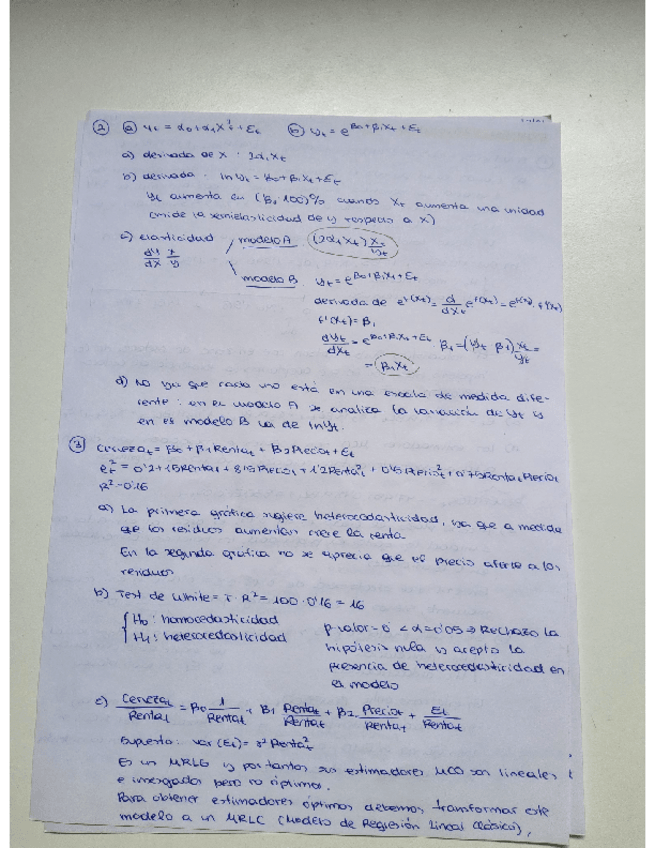 ② ⓐ yt = α0+α1X²t+Et ⓑ yt = e^β0+β1Xt+Et
a) derivada de X : 2α1Xt
b) derivada : lnyt = β0+β1Xt+Et
yt aumenta en (β1 100)% cuando Xt aumenta una unidad
(mide la semielasticidad de y respecto a X)
c) elasticidad modelo A (2α1Xt) Xt/yt
dy/dX X/y
modelo B yt = e^β0+β1Xt+Et
derivada de e^f(Xt) = d/dXt e^f(Xt) = e^f(Xt) · f'(Xt)
f'(Xt) = β1
dyt/dXt = e^β0+β1Xt+Et β1 = (yt β1) Xt/yt =
= β1Xt
d) No ya que cada uno está en una escala de medida dife-
rente : en el modelo A se analiza la variación de yt y
en el modelo B la de lnyt.
③ Cervezat = β0 + β1Rentat + β2Preciot + Et
et² = 0'2+1'5Rentat + 8'15Preciot + 1'2Renta²t + 0'45Precio²t + 0'75RentatPreciot
R² = 0'16
a) La primera gráfica sugiere heterocedasticidad, ya que a medida
que los residuos aumentan crece la renta
En la segunda gráfica no se aprecia que el precio afecte a los
residuos
b) Test de White = T · R² = 100 · 0'16 = 16
H0 : homocedasticidad
H1 : heterocedasticidad
p valor = 0 < α = 0'05 ⇒ Rechazo la
hipótesis nula y acepto la
presencia de heterocedasticidad en
el modelo
c) Cervezat/Rentat = β0 1/Rentat + β1 Rentat/Rentat + β2 Preciot/Rentat + Et/Rentat
Supuesto : var (Et) = σ² Renta²t
Es un MRLG y por tanto sus estimadores MCO son lineales
e insesgados pero no óptimos.
Para obtener estimadores óptimos debemos transformar este
modelo a un MRLC (Modelo de Regresión Lineal Clásico),